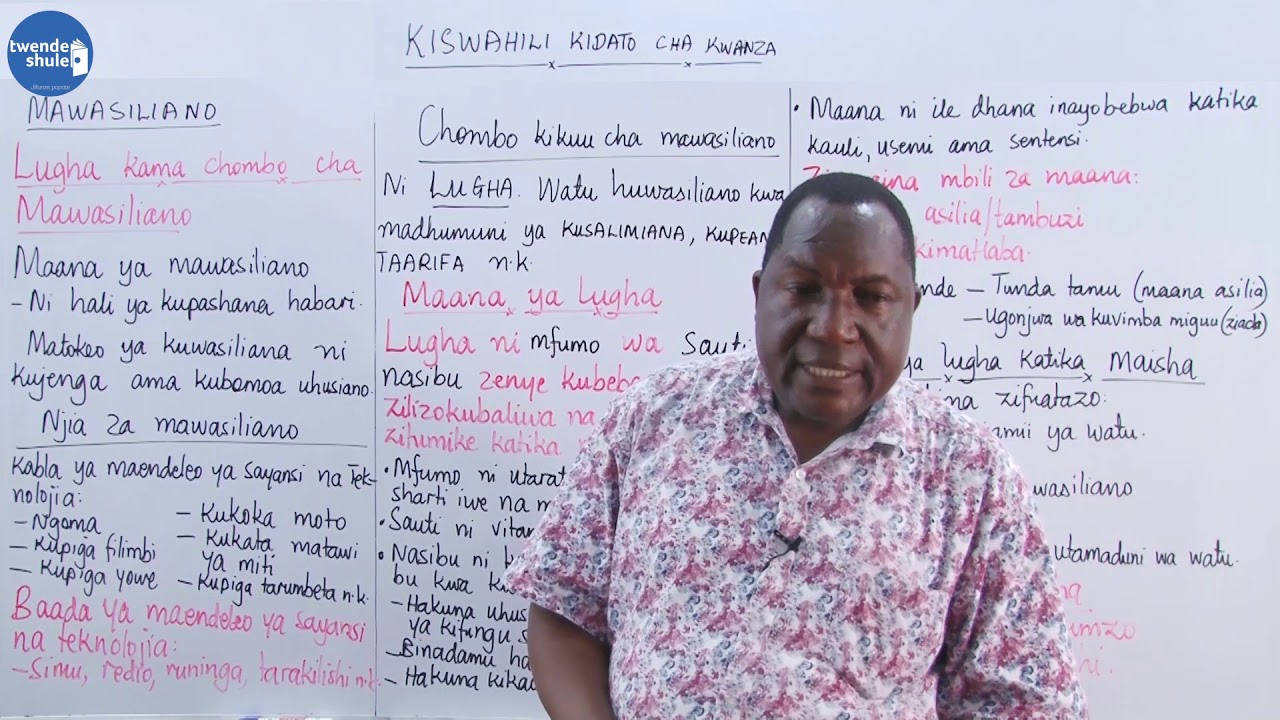 twende
shule
KISWAHILI KIDATO CHA KWANZA
MAWASILIANO
Lugha kama chombo cha
Mawasiliano
Maana ya mawasiliano
- Ni hali ya kupashana habari.
Matokeo ya kuwasiliana ni
kujenga ama kubomoa uhusiano.
Njia za mawasiliano
Kabla ya maendeleo ya sayansi na Tek-
nolojia:
- Ngoma
- Kupiga filimbi
- Kupiga yowe
- Kukoka moto
- Kukata matawi
ya miti
- Kupiga tarumbeta n.k.
Baada ya maendeleo ya sayansi
na teknolojia:
- Simu, redio, runinga, tarakilishi n.k
Chombo kikuu cha mawasiliano
Ni LUGHA. Watu huwasiliano kwa
madhumuni ya KUSALIMIANA, KUPEAN
TAARIFA n.k.
Maana ya lugha
Lugha ni mfumo wa Sauti
nasibu zenye kubeba
zilizokubaliwa na
zitumike katika
• Mfumo ni utarat
sharti iwe na m
• Sauti ni vitam
• Nasibu ni k
bu kwa ku
- Hakuna uhus
ya kifungu s
- Binadamu ha
- Hakuna kikao
• Maana ni ile dhana inayobebwa katika
kauli, usemi ama sentensi.
aina mbili za maana:
asilia/tambuzi
kimatlaba.
nde - Tunda tamu (maana asilia)
- Ugonjwa wa kuvimba miguu (ziada)
ya lugha katika Maisha
na zifuatazo:
amii ya watu.
wasiliano
utamaduni wa watu.